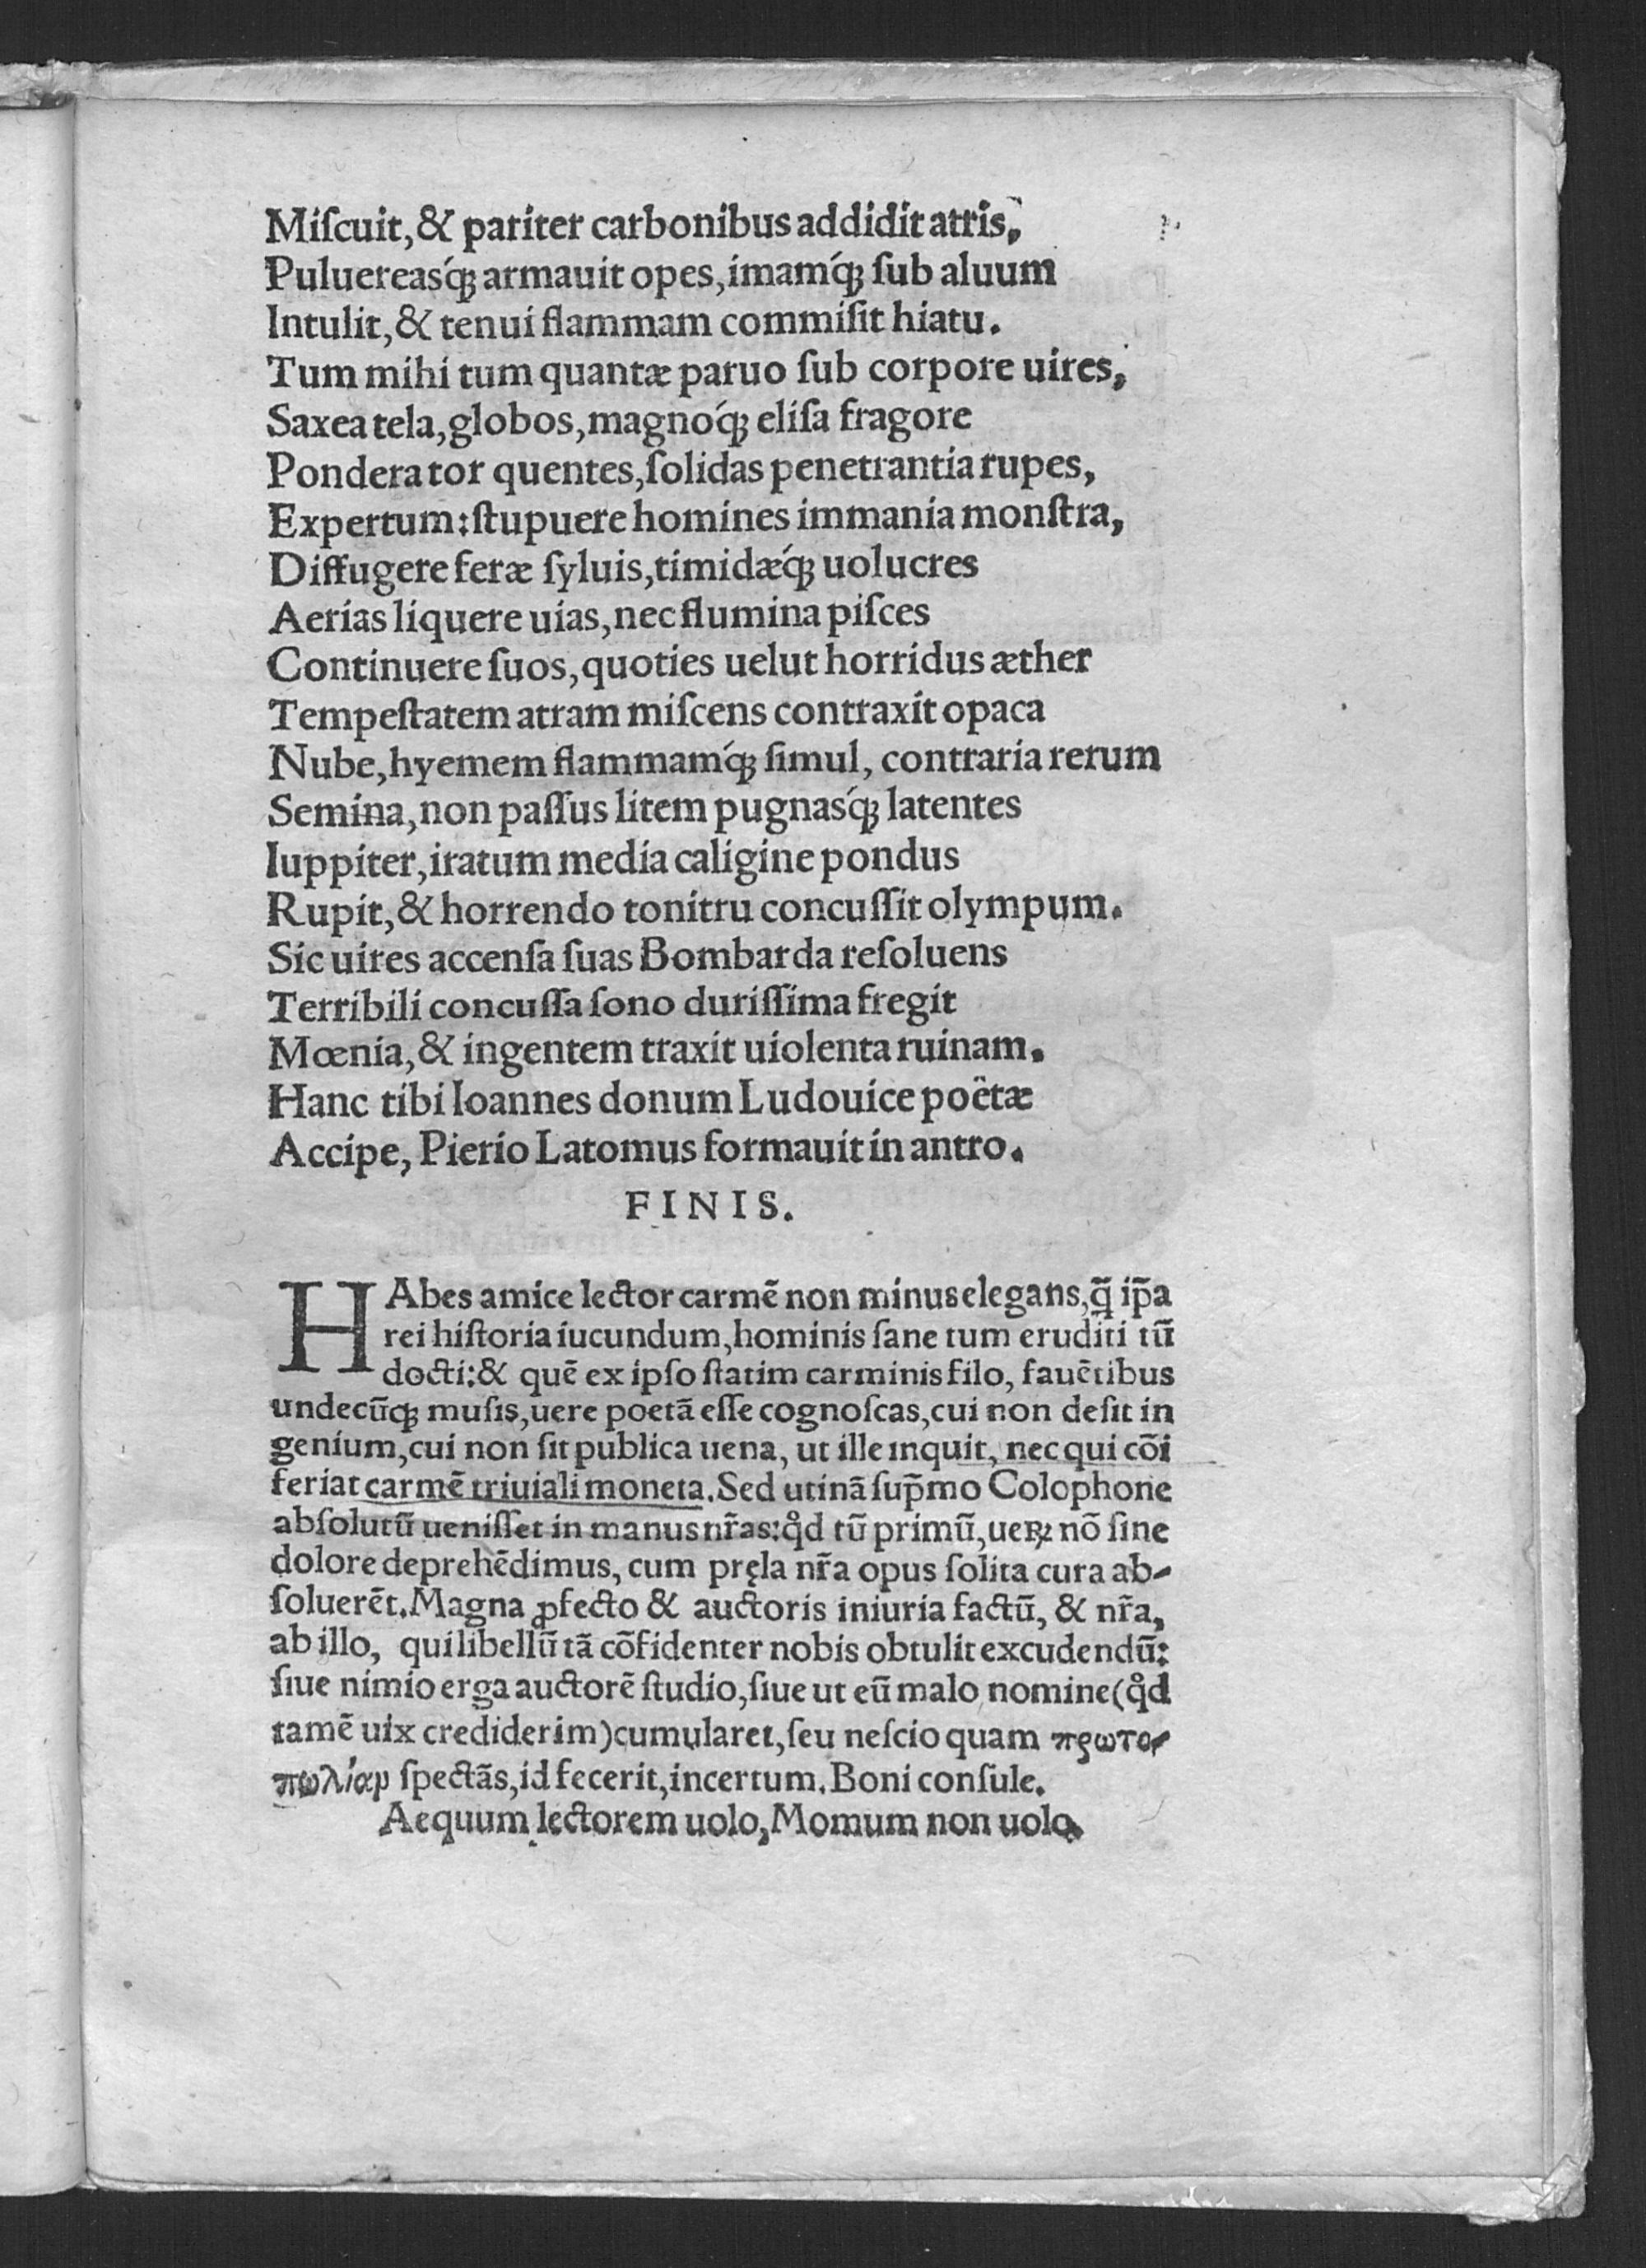 Miſcuit, & pariter carbonibus addidit atris,
Puluereasq́; armauit opes, imamq́; ſub aluum
Intulit, & tenui flammam commiſit hiatu.
Tum mihi tum quantæ paruo ſub corpore uires,
Saxea tela, globos, magnoq́; eliſa fragore
Pondera tor quentes, ſolidas penetrantia rupes,
Expertum: ſtupuere homines immania monſtra,
Diffugere feræ ſyluis, timidæq́; uolucres
Aerias liquere uias, nec flumina piſces
Continuere ſuos, quoties uelut horridus æther
Tempeſtatem atram miſcens contraxit opaca
Nube, hyemem flammamq́; ſimul, contraria rerum
Semina, non paſſus litem pugnasq́; latentes
Iuppiter, iratum media caligine pondus
Rupit, & horrendo tonitru concuſſit olympum.
Sic uires accenſa ſuas Bombarda reſoluens
Terribili concuſſa ſono duriſſima fregit
Mœnia, & ingentem traxit uiolenta ruinam.
Hanc tibi Ioannes donum Ludouice poëtæ
Accipe, Pierio Latomus formauit in antro.
FINIS.
HAbes amice lector carmẽ non minus elegans, q̃ ip̃a
rei hiſtoria iucundum, hominis ſane tum eruditi tũ
docti: & quẽ ex ipſo ſtatim carminis filo, fauẽtibus
undecũq; muſis, uere poetã eſſe cognoſcas, cui non deſit in
genium, cui non ſit publica uena, ut ille inquit, nec qui cõi
feriat carmẽ triuiali moneta. Sed utinã ſup̃mo Colophone
abſolutũ ueniſſet in manus nr̃as: qd̊ tũ primũ, ueꝝ nõ ſine
dolore deprehẽdimus, cum pręla nr̃a opus ſolita cura ab-
ſoluerẽt. Magna ꝓfecto & auctoris iniuria factũ, & nr̃a,
ab illo, qui libellũ tã cõfidenter nobis obtulit excudendũ:
ſiue nimio erga auctorẽ ſtudio, ſiue ut eũ malo nomine (qd̊
tamẽ uix crediderim) cumularet, ſeu neſcio quam πρωτο-
πωλίαν ſpectãs, id fecerit, incertum. Boni conſule.
Aequum lectorem uolo, Momum non uolo.